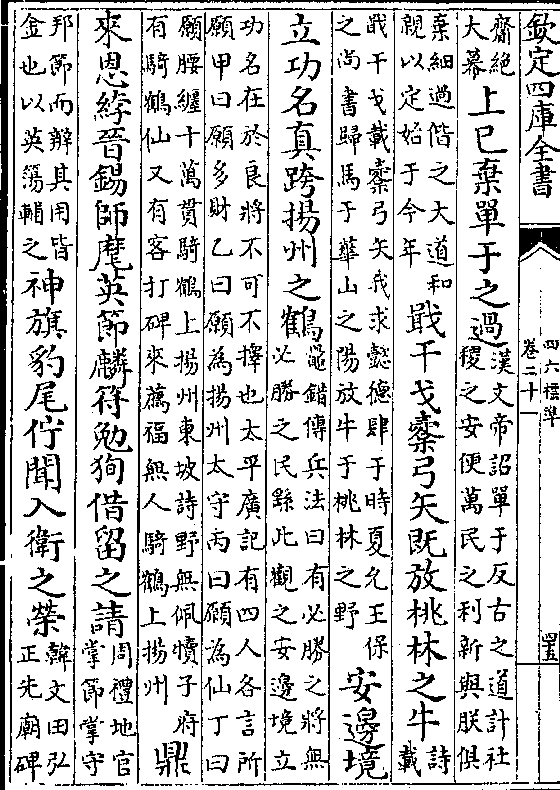 欽定四庫全書
四六標準
卷二十一
齋絕
大幕
上已棄單于之過
漢文帝詔單于反古之道計社
稷之安便萬民之利新與朕俱
棄細過偕之大道和
親以定始于今年
戢干戈櫜弓矢既放桃林之牛
詩
載
戢干戈載櫜弓矢我求懿德肆于時夏允王保
之尚書歸馬于華山之陽放牛于桃林之野
安邊境
立功名真跨揚州之鶴
鼂錯傳兵法曰有必勝之將無
必勝之民繇此觀之安邊境立
功名在於良將不可不擇也太平廣記有四人各言所
願甲曰願多財乙曰願為揚州太守丙曰願為仙丁曰
願腰纏十萬貫騎鶴上揚州東坡詩野無佩犢子府
有騎鶴仙又有客打碑來薦福無人騎鶴上揚州
鼎
來恩綍晉錫師麾英節麟符勉狥借留之請
周禮地官
掌節掌守
邦節而辨其用皆
金也以英蕩輔之
神旗豹尾佇聞入衛之榮
韓文田弘
正先廟碑